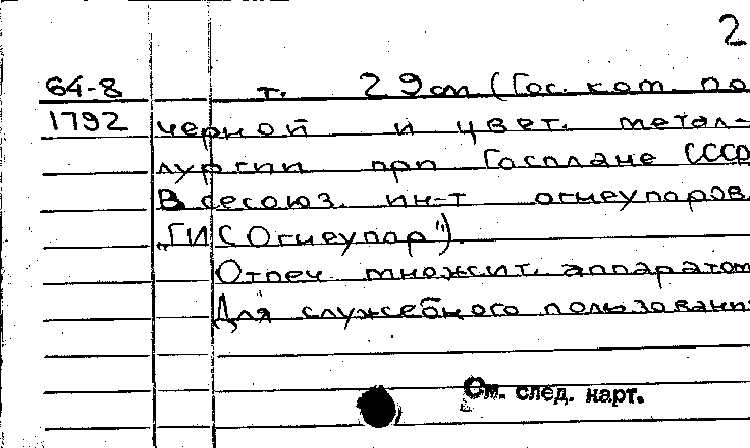 2
64-8 т. 29 см (Гос. ком. по
1792 черной и цвет. метал-
лургии при Госплане СССР
Всесоюз. ин-т огнеупоров
„ГИС Огнеупор").
Отпеч. множит. аппаратом
Для служебного пользования
См. след. карт.